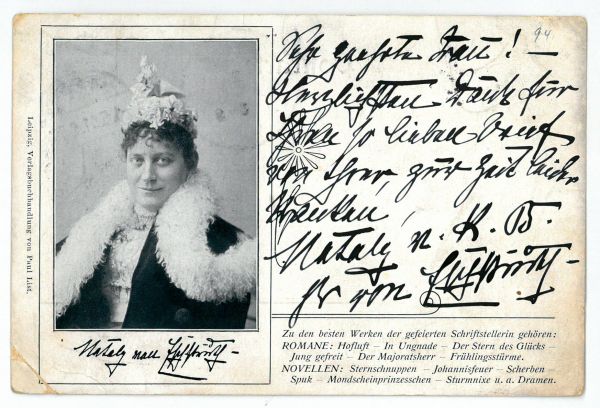 94
Sehr geehrte Frau! —
Herzlichsten Dank für
Ihren so lieben Brief
von Ihrer, zur Zeit leider
Kranken,
Nataly v. E. B.
von Eschstruth —
Leipzig, Verlagsbuchhandlung von Paul List.
Nataly von Eschstruth —
Zu den besten Werken der gefeierten Schriftstellerin gehören:
ROMANE: Hofluft — In Ungnade — Der Stern des Glücks —
Jung gefreit — Der Majoratsherr — Frühlingsstürme.
NOVELLEN: Sternschnuppen — Johannisfeuer — Scherben —
Spuk — Mondscheinprinzesschen — Sturmnixe u. a. Dramen.